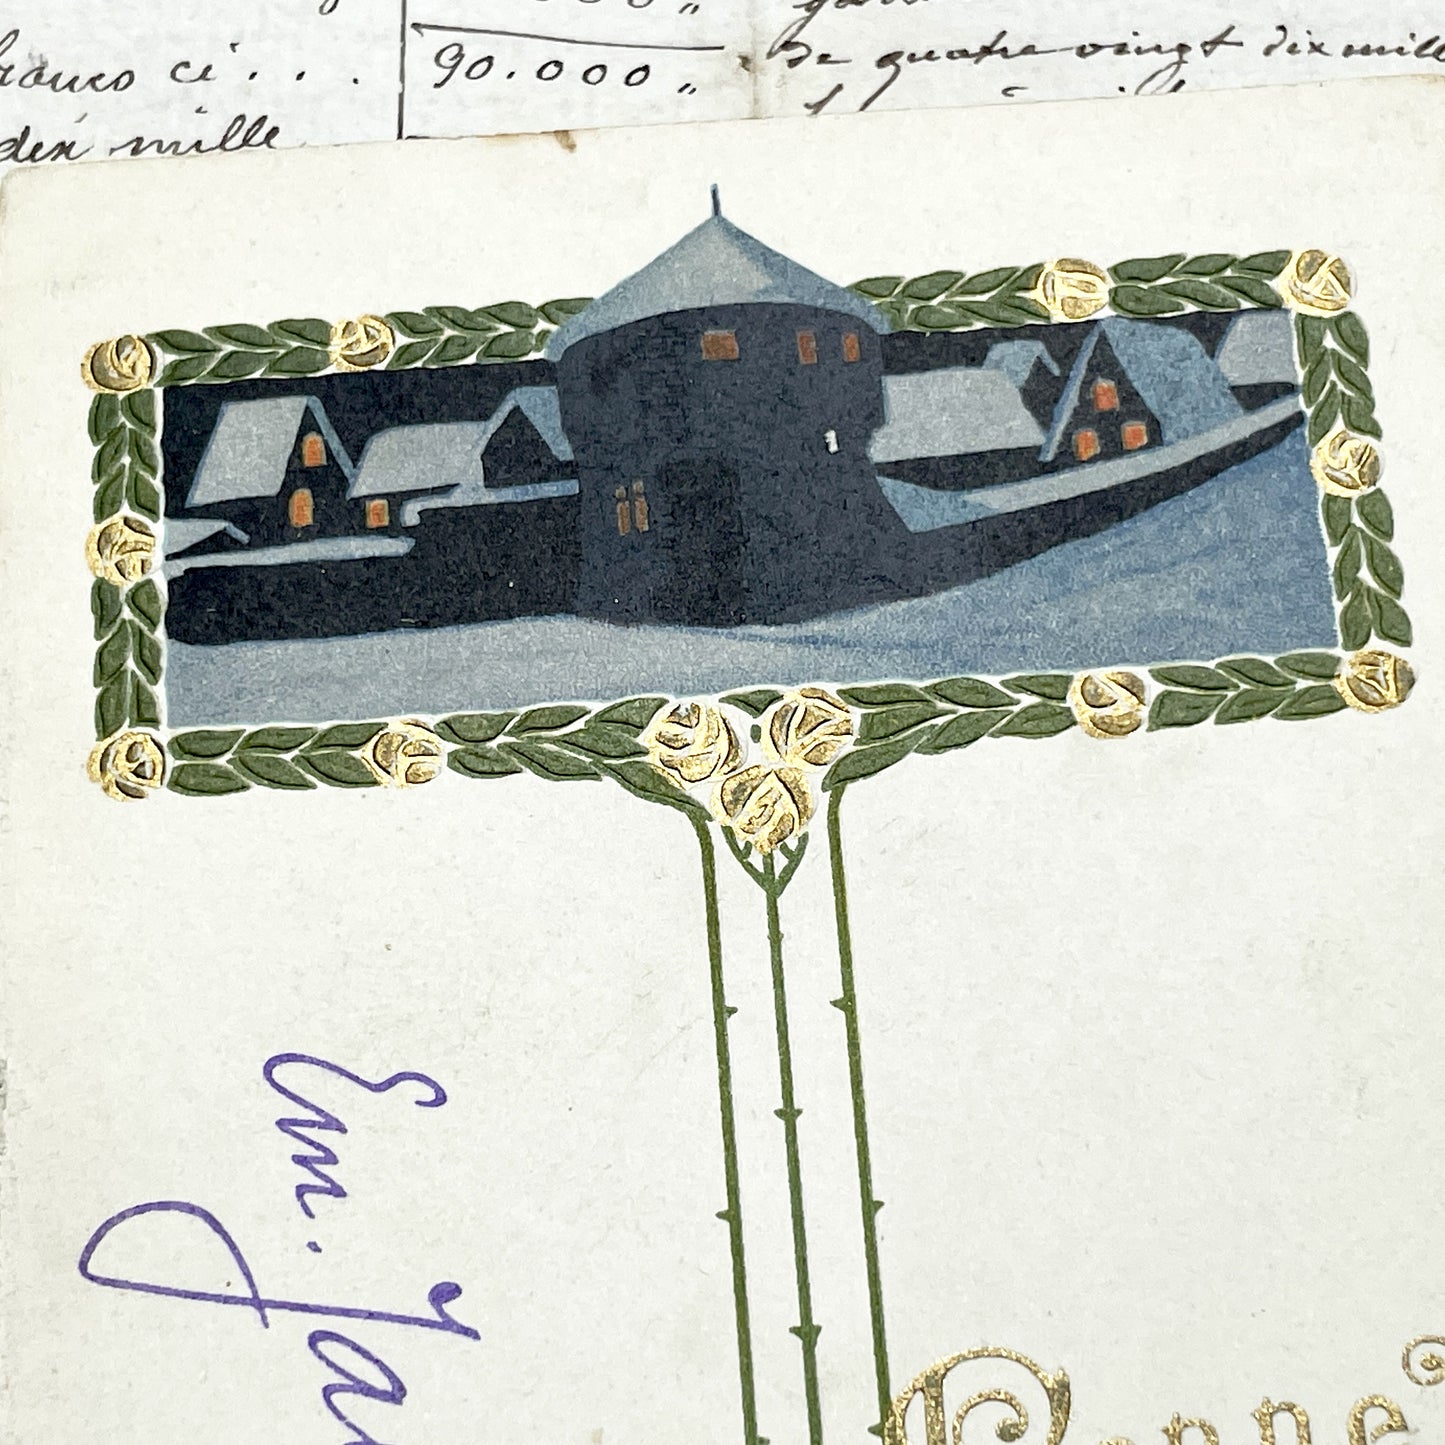 90.000 „
De quatre vingt dix mille
francs ci . . .
dix mille
Em. Ja
Bonne